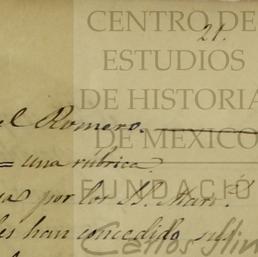 CENTRO DE
21.
ESTUDIOS
DE HISTORIA
el Romero.
DE MEXICO
= una rúbrica.
FUNDACIÓ
por los S.
les han concedido sus
Carlos Slim